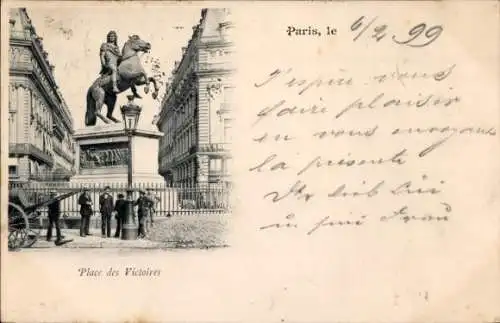 Paris, le 6/2 99
J'espère vous
faire plaisir
en vous envoyant
la présente
u. Frau
Place des Victoires